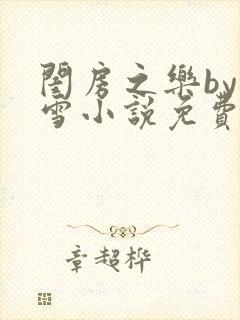 閨房之樂by
雪小說免費
章超桦